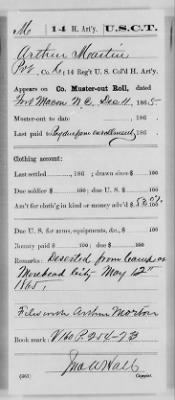 M | 14 H. Art'y. | U.S.C.T.
Arthur Martin
Pvt, Co. C, 14 Reg't U. S. Col'd H. Art'y.
Appears on Co. Muster-out Roll, dated
Fort Macon N.C. Dec 11, 1865.
Muster-out to date , 186 .
Last paid to enrollment , 186 .
Clothing account:
Last settled , 186 ; drawn since $ 100
Due soldier $ 100; due U. S. $ 100
Am't for cloth'g in kind or money adv'd $ 100
Due U. S. for arms, equipments, &c., $ 100
Bounty paid $ 100; due $ 100
Remarks: Deserted from Camp
Morehead City May 12th
1865,
Arthur Morton
Book mark:
Jno A Hall
Copyist.